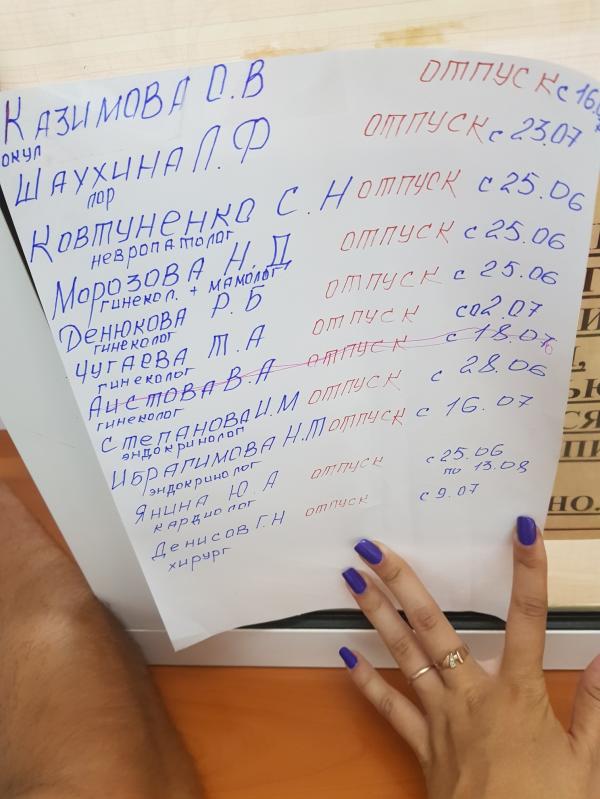 КАЗИМОВА О.В ОТПУСК с 16.07
окул
ШАУХИНА Л.Ф ОТПУСК с 23.07
лор
КОВТУНЕНКО С.Н ОТПУСК с 25.06
невропатолог
МОРОЗОВА Н.Д ОТПУСК с 25.06
гинекол. + мамолог
ДЕНЮКОВА Р.Б ОТПУСК с 25.06
гинеколог
ЧУГАЕВА Т.А ОТПУСК со 2.07
гинеколог
АИСТОВА В.А ОТПУСК с 18.07
гинеколог
СТЕПАНОВА И.М ОТПУСК с 28.06
эндокринолог
ИБРАГИМОВА Н.Т ОТПУСК с 16.07
эндокринолог
ЯНИНА Ю.А ОТПУСК с 25.06
по 13.08
кардиолог
ДЕНИСОВ Г.Н ОТПУСК с 9.07
хирург